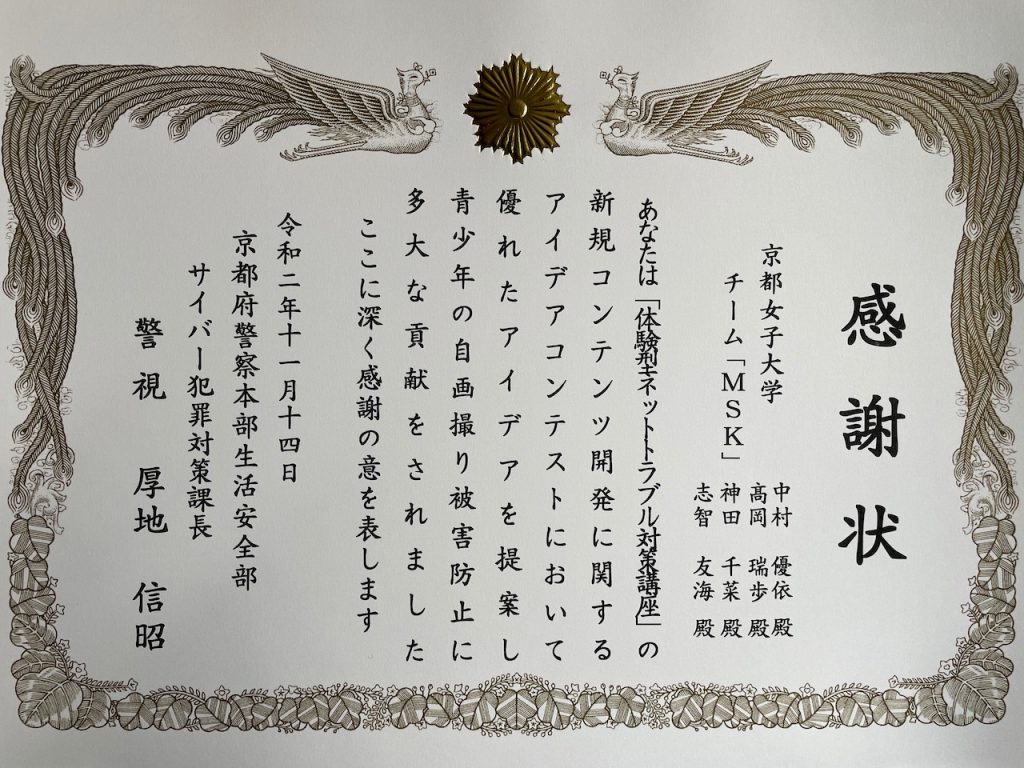 感謝状
京都女子大学
チーム「MSK」
中村 優依 殿
髙岡 瑞歩 殿
神田 千菜 殿
志智 友海 殿
あなたは「体験型ネットトラブル対策講座」の
新規コンテンツ開発に関する
アイデアコンテストにおいて
優れたアイデアを提案し
青少年の自画撮り被害防止に
多大な貢献をされました
ここに深く感謝の意を表します
令和二年十一月十四日
京都府警察本部生活安全部
サイバー犯罪対策課長
警視 厚地 信昭